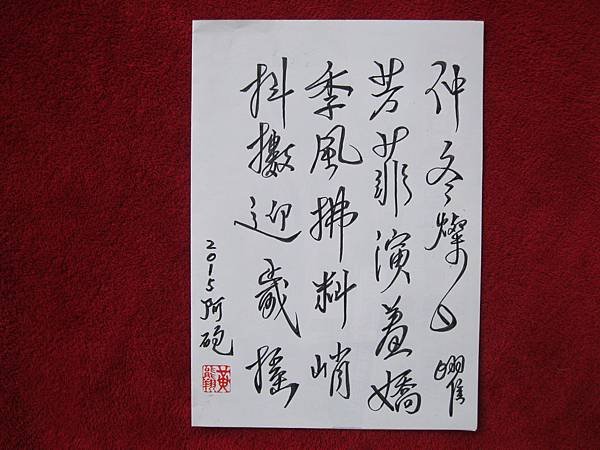 仲冬燦心曜
芳菲演羞嬌
季風拂料峭
抖擻迎歲搖
2015阿砲